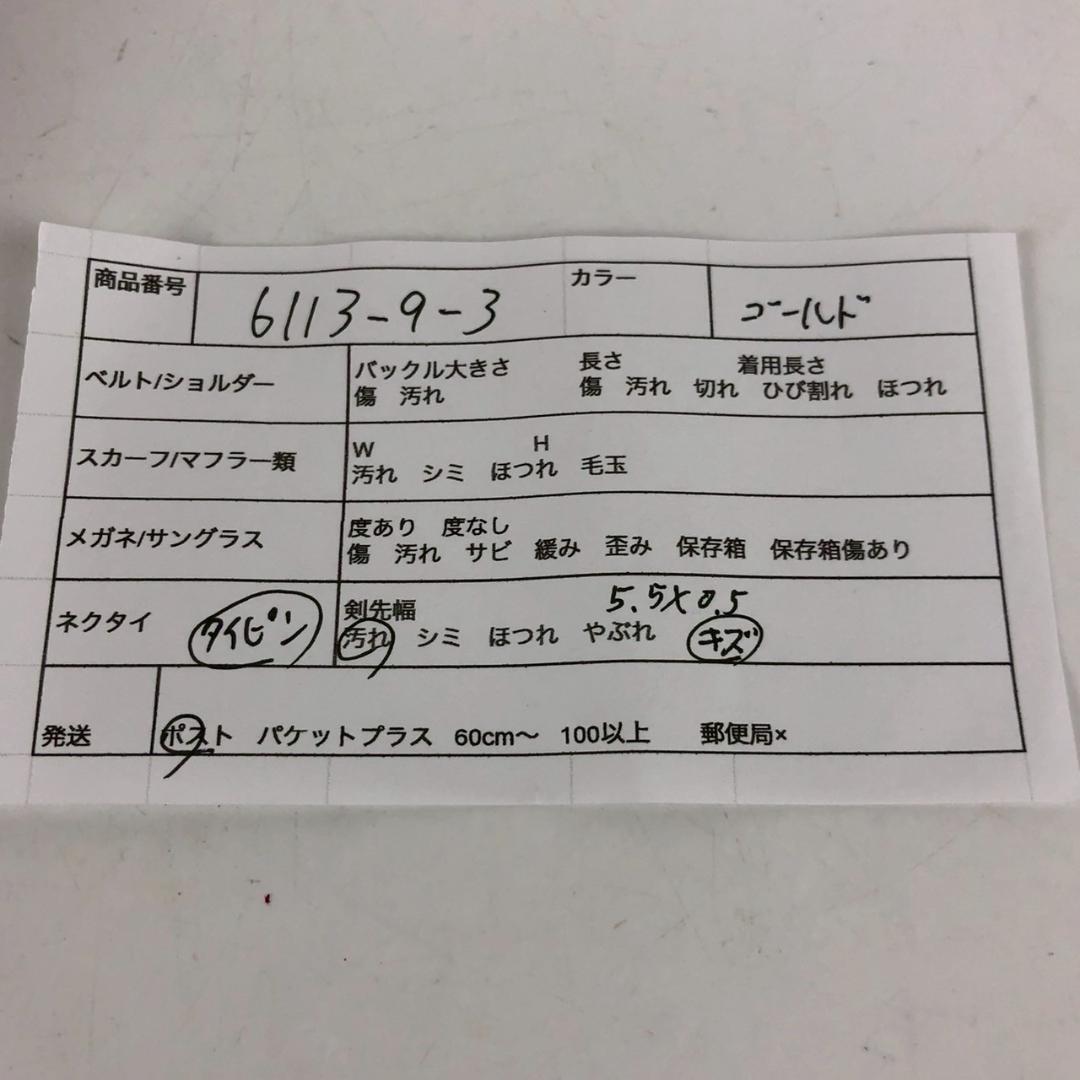 商品番号 6113-9-3 カラー ゴールド
ベルト/ショルダー バックル大きさ 長さ 着用長さ
傷 汚れ 傷 汚れ 切れ ひび割れ ほつれ
スカーフ/マフラー類 W H
汚れ シミ ほつれ 毛玉
メガネ/サングラス 度あり 度なし
傷 汚れ サビ 緩み 歪み 保存箱 保存箱傷あり
ネクタイ タイピン 剣先幅 5.5×0.5
汚れ シミ ほつれ やぶれ キズ
発送 ポスト パケットプラス 60cm〜 100以上 郵便局×